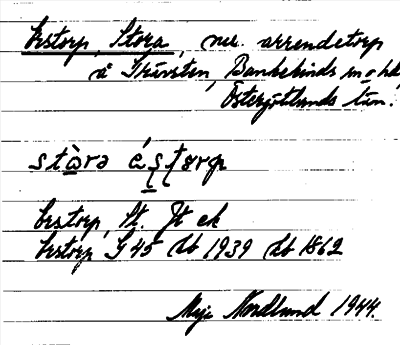 Estorp, Stora, nu. arrendetorp
å Grävsten, Bankekinds sn o hd
Östergötlands län.
stàra éstorp
Estorp, St. Jb ek
Estorp G 45 Db 1939 Lb 1862
Maje Nordlund 1944.